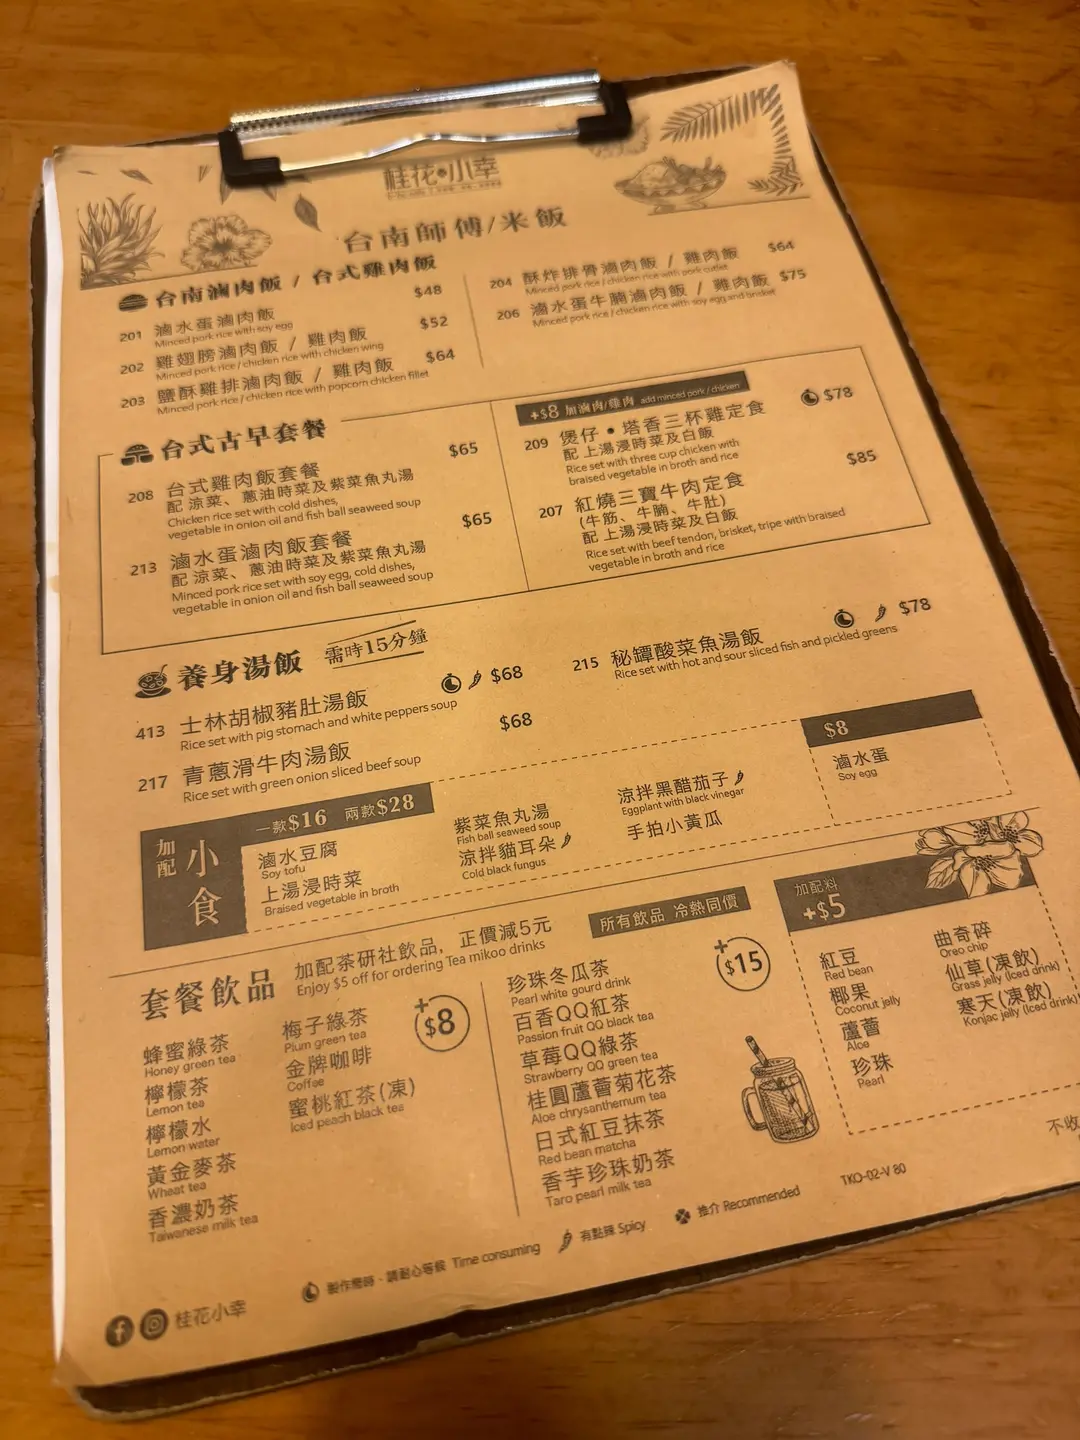 桂花小幸
台南師傅/米飯
台南滷肉飯 / 台式雞肉飯
201 滷水蛋滷肉飯 $48
Minced pork rice with soy egg
202 雞翅膀滷肉飯 / 雞肉飯 $52
Minced pork rice / chicken rice with chicken wing
203 鹽酥雞排滷肉飯 / 雞肉飯 $64
Minced pork rice / chicken rice with popcorn chicken fillet
204 酥炸排骨滷肉飯 / 雞肉飯 $64
Minced pork rice / chicken rice with pork cutlet
206 滷水蛋牛腩滷肉飯 / 雞肉飯 $75
Minced pork rice / chicken rice with soy egg and brisket
台式古早套餐
208 台式雞肉飯套餐 $65
配 涼菜、蔥油時菜及紫菜魚丸湯
Chicken rice set with cold dishes,
vegetable in onion oil and fish ball seaweed soup
213 滷水蛋滷肉飯套餐 $65
配 涼菜、蔥油時菜及紫菜魚丸湯
Minced pork rice set with soy egg, cold dishes,
vegetable in onion oil and fish ball seaweed soup
+$8 加滷肉/雞肉 add minced pork / chicken
209 煲仔•塔香三杯雞定食 $78
配 上湯浸時菜及白飯
Rice set with three cup chicken with
braised vegetable in broth and rice
207 紅燒三寶牛肉定食 $85
(牛筋、牛腩、牛肚)
配 上湯浸時菜及白飯
Rice set with beef tendon, brisket, tripe with braised
vegetable in broth and rice
養身湯飯 需時15分鐘
413 士林胡椒豬肚湯飯 $68
Rice set with pig stomach and white peppers soup
217 青蔥滑牛肉湯飯 $68
Rice set with green onion sliced beef soup
215 秘罈酸菜魚湯飯 $78
Rice set with hot and sour sliced fish and pickled greens
加配 小食
一款$16 兩款$28
滷水豆腐
Soy tofu
上湯浸時菜
Braised vegetable in broth
紫菜魚丸湯
Fish ball seaweed soup
涼拌貓耳朵
Cold black fungus
涼拌黑醋茄子
Eggplant with black vinegar
手拍小黃瓜
$8
滷水蛋
Soy egg
套餐飲品
加配茶研社飲品，正價減5元
Enjoy $5 off for ordering Tea mikoo drinks
所有飲品 冷熱同價
+$8
蜂蜜綠茶
Honey green tea
檸檬茶
Lemon tea
檸檬水
Lemon water
黃金麥茶
Wheat tea
香濃奶茶
Taiwanese milk tea
梅子綠茶
Plum green tea
金牌咖啡
Coffee
蜜桃紅茶(凍)
Iced peach black tea
+$15
珍珠冬瓜茶
Pearl white gourd drink
百香QQ紅茶
Passion fruit QQ black tea
草莓QQ綠茶
Strawberry QQ green tea
桂圓蘆薈菊花茶
Aloe chrysanthemum tea
日式紅豆抹茶
Red bean matcha
香芋珍珠奶茶
Taro pearl milk tea
加配料
+$5
紅豆
Red bean
椰果
Coconut jelly
蘆薈
Aloe
珍珠
Pearl
曲奇碎
Oreo chip
仙草(凍飲)
Grass jelly (Iced drink)
寒天(凍飲)
Konjac jelly (Iced drink)
不收
TKO-02-V 80
製作需時，請耐心等候 Time consuming
有點辣 Spicy
推介 Recommended
桂花小幸